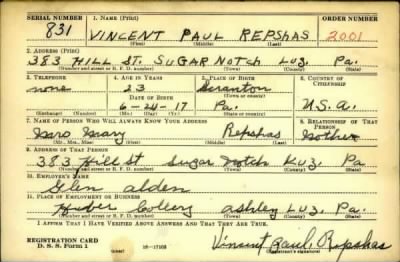 SERIAL NUMBER 1. NAME (Print) ORDER NUMBER
831 VINCENT PAUL REPSHAS 2001
(First) (Middle) (Last)
2. ADDRESS (Print)
383 HILL ST. SUGAR NOTCH LUZ. Pa.
(Number and street or R. F. D. number) (Town) (County) (State)
3. TELEPHONE 4. AGE IN YEARS 5. PLACE OF BIRTH 6. COUNTRY OF CITIZENSHIP
none 23 Scranton
DATE OF BIRTH (Town or county)
6-24-17 Pa. U.S.A.
(Exchange) (Number) (Mo.) (Day) (Yr.) (State or country)
7. NAME OF PERSON WHO WILL ALWAYS KNOW YOUR ADDRESS 8. RELATIONSHIP OF THAT PERSON
Mrs Mary Repshas Mother
(Mr., Mrs., Miss) (First) (Middle) (Last)
9. ADDRESS OF THAT PERSON
383 Hill St Sugar Notch Luz. Pa
(Number and street or R. F. D. number) (Town) (County) (State)
10. EMPLOYER'S NAME
Glen alden
11. PLACE OF EMPLOYMENT OR BUSINESS
Huber Collery ashley LUZ. Pa.
(Number and street or R. F. D. number) (Town) (County) (State)
I AFFIRM THAT I HAVE VERIFIED ABOVE ANSWERS AND THAT THEY ARE TRUE.
REGISTRATION CARD
D. S. S. Form 1 16-17105 Vincent Paul Repshas
(Registrant's signature)